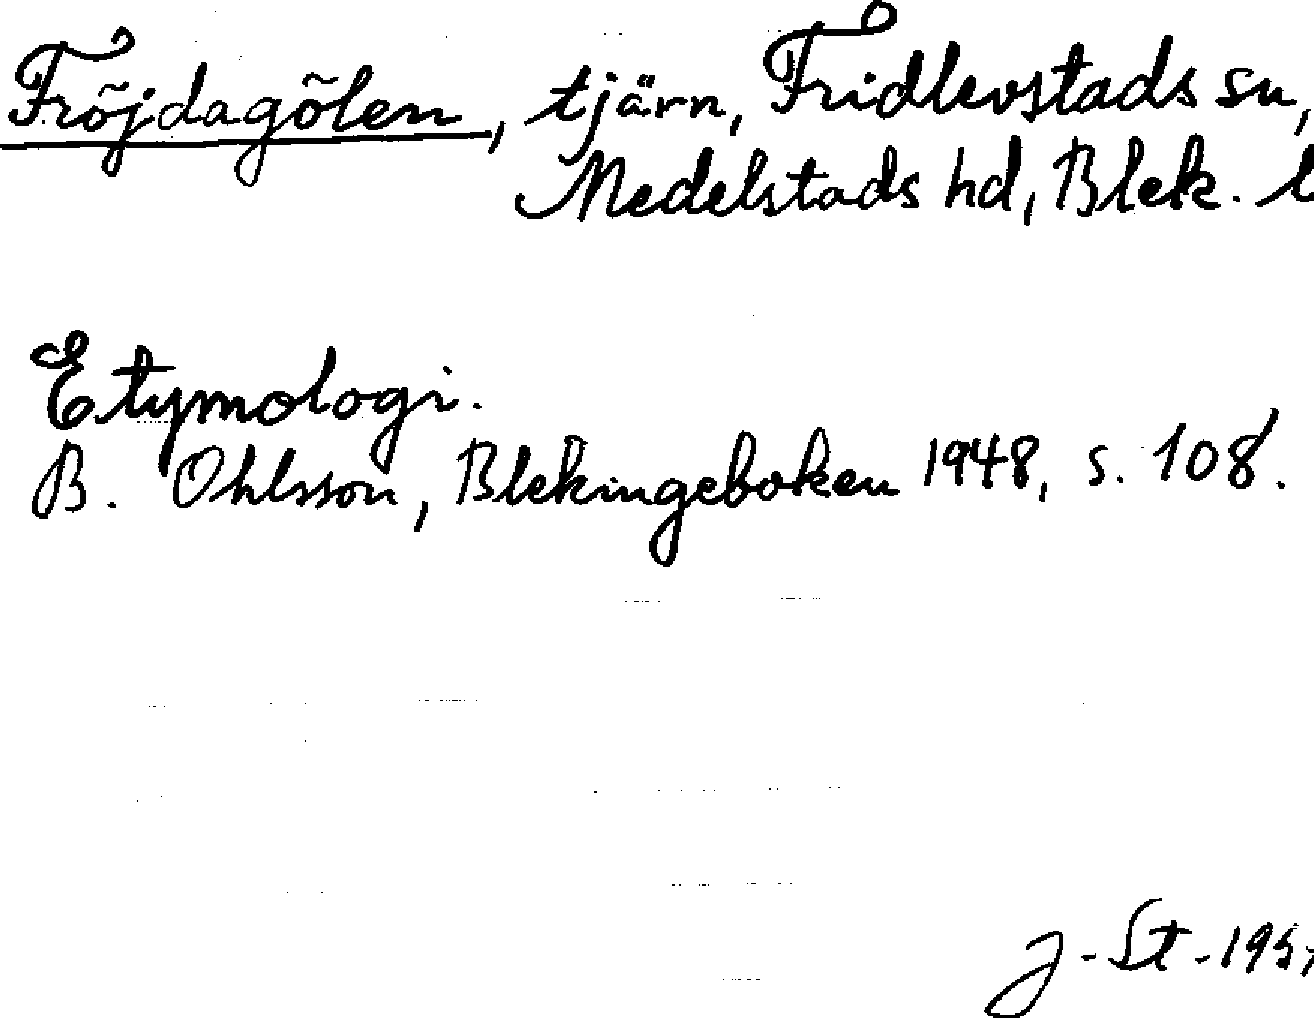 Fröjdagölen, tjärn, Fridlevstads sn,
Medelstads hd, Blek. l
Etymologi.
B. Ohlsson, Blekingeboken 1948, s. 108.
J-St-195